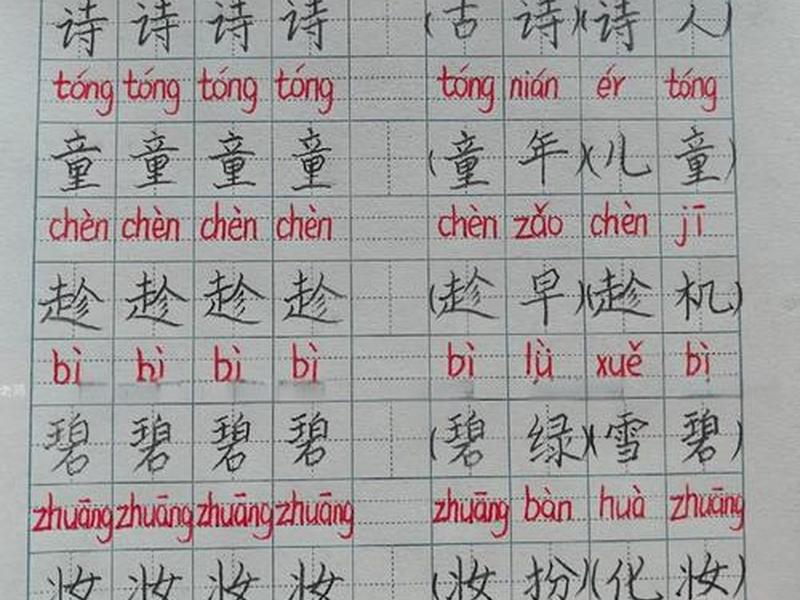 诗 诗 诗 诗 (古 诗)(诗 人)
tóng tóng tóng tóng tóng nián ér tóng
童 童 童 童 (童 年)(儿 童)
chèn chèn chèn chèn chèn zǎo chèn jī
趁 趁 趁 趁 (趁 早)(趁 机)
bì bì bì bì bì lǜ xuě bì
碧 碧 碧 碧 (碧 绿)(雪 碧)
zhuāng zhuāng zhuāng zhuāng zhuāng bàn huà zhuāng
妆 妆 妆 妆 (妆 扮)(化 妆)